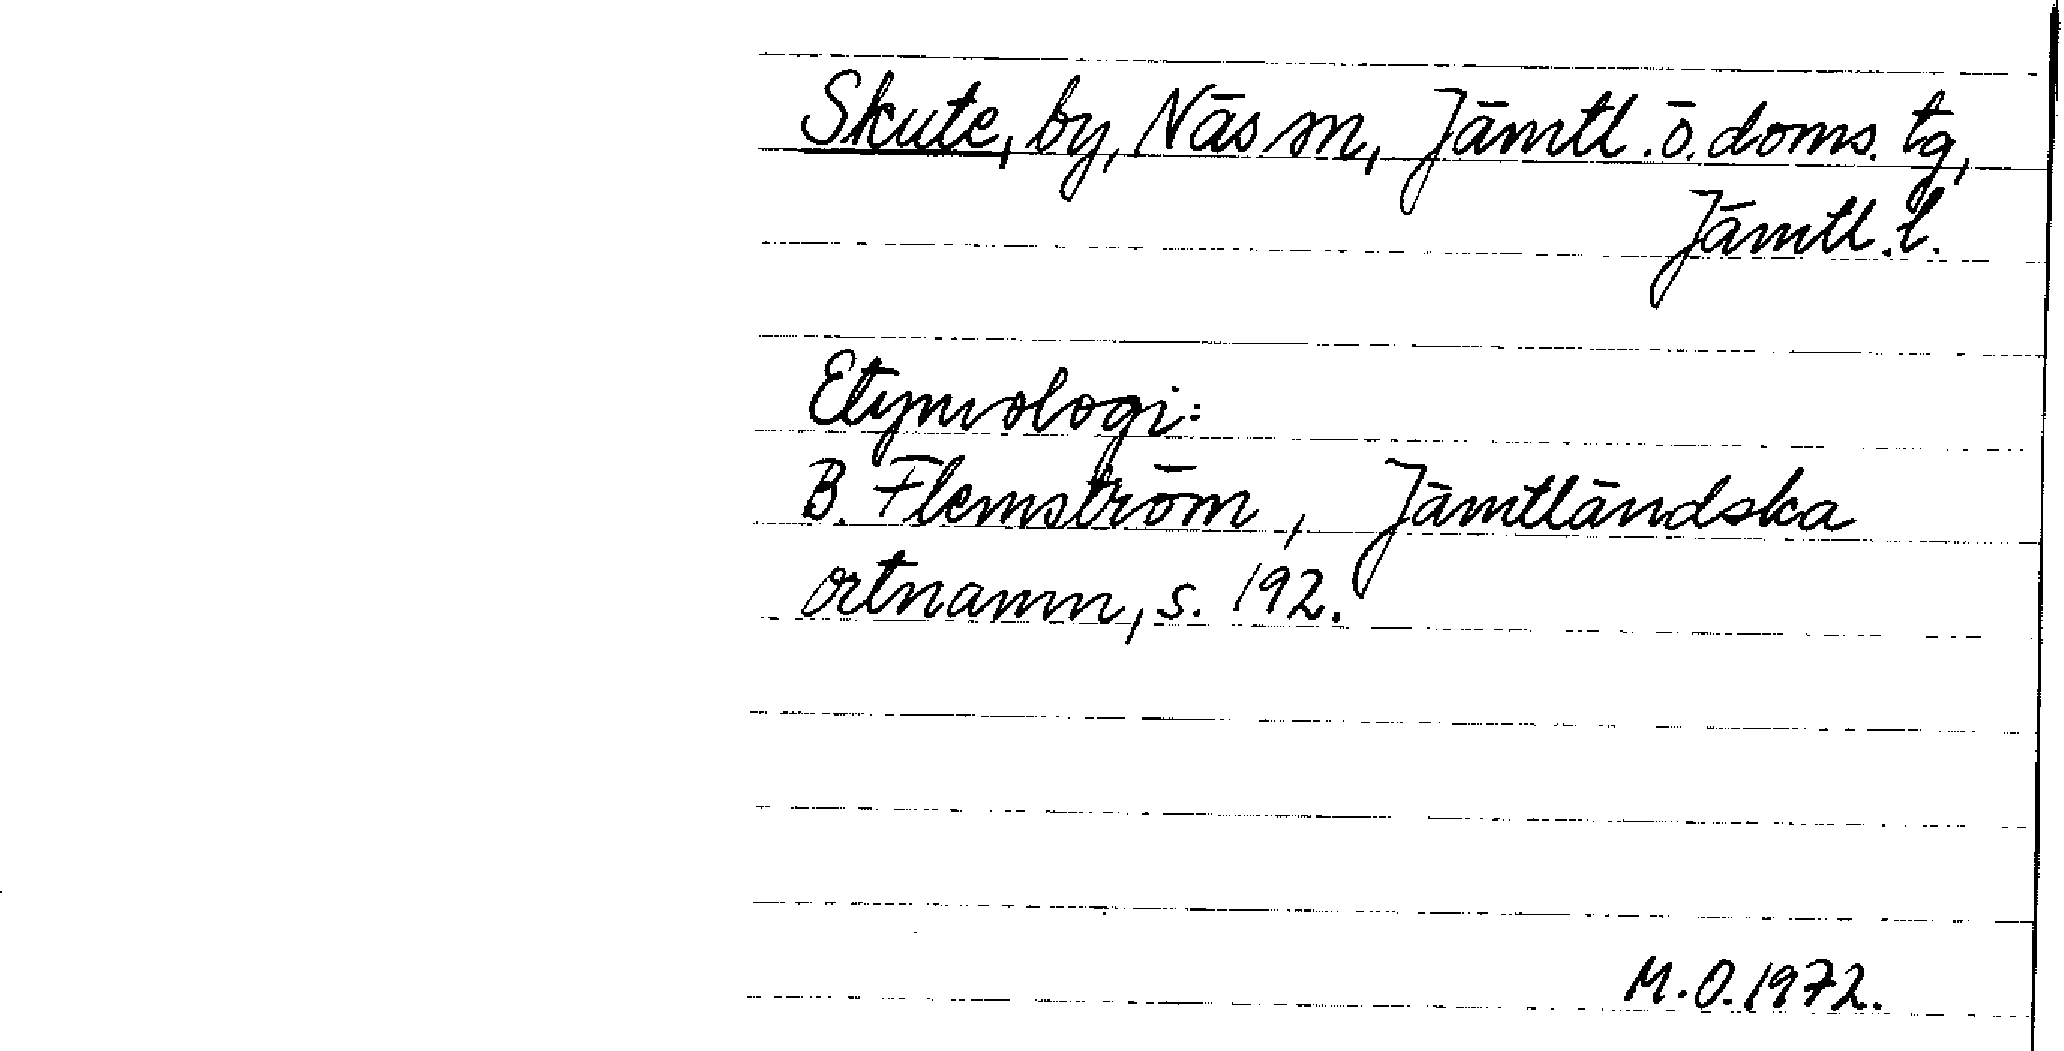 Skute, by, Näs sn, Jämtl. ö. doms. tg,
Jämtl. l.
Etymologi:
B. Flemström, Jämtländska
ortnamn, s. 192.
M.O. 1972.